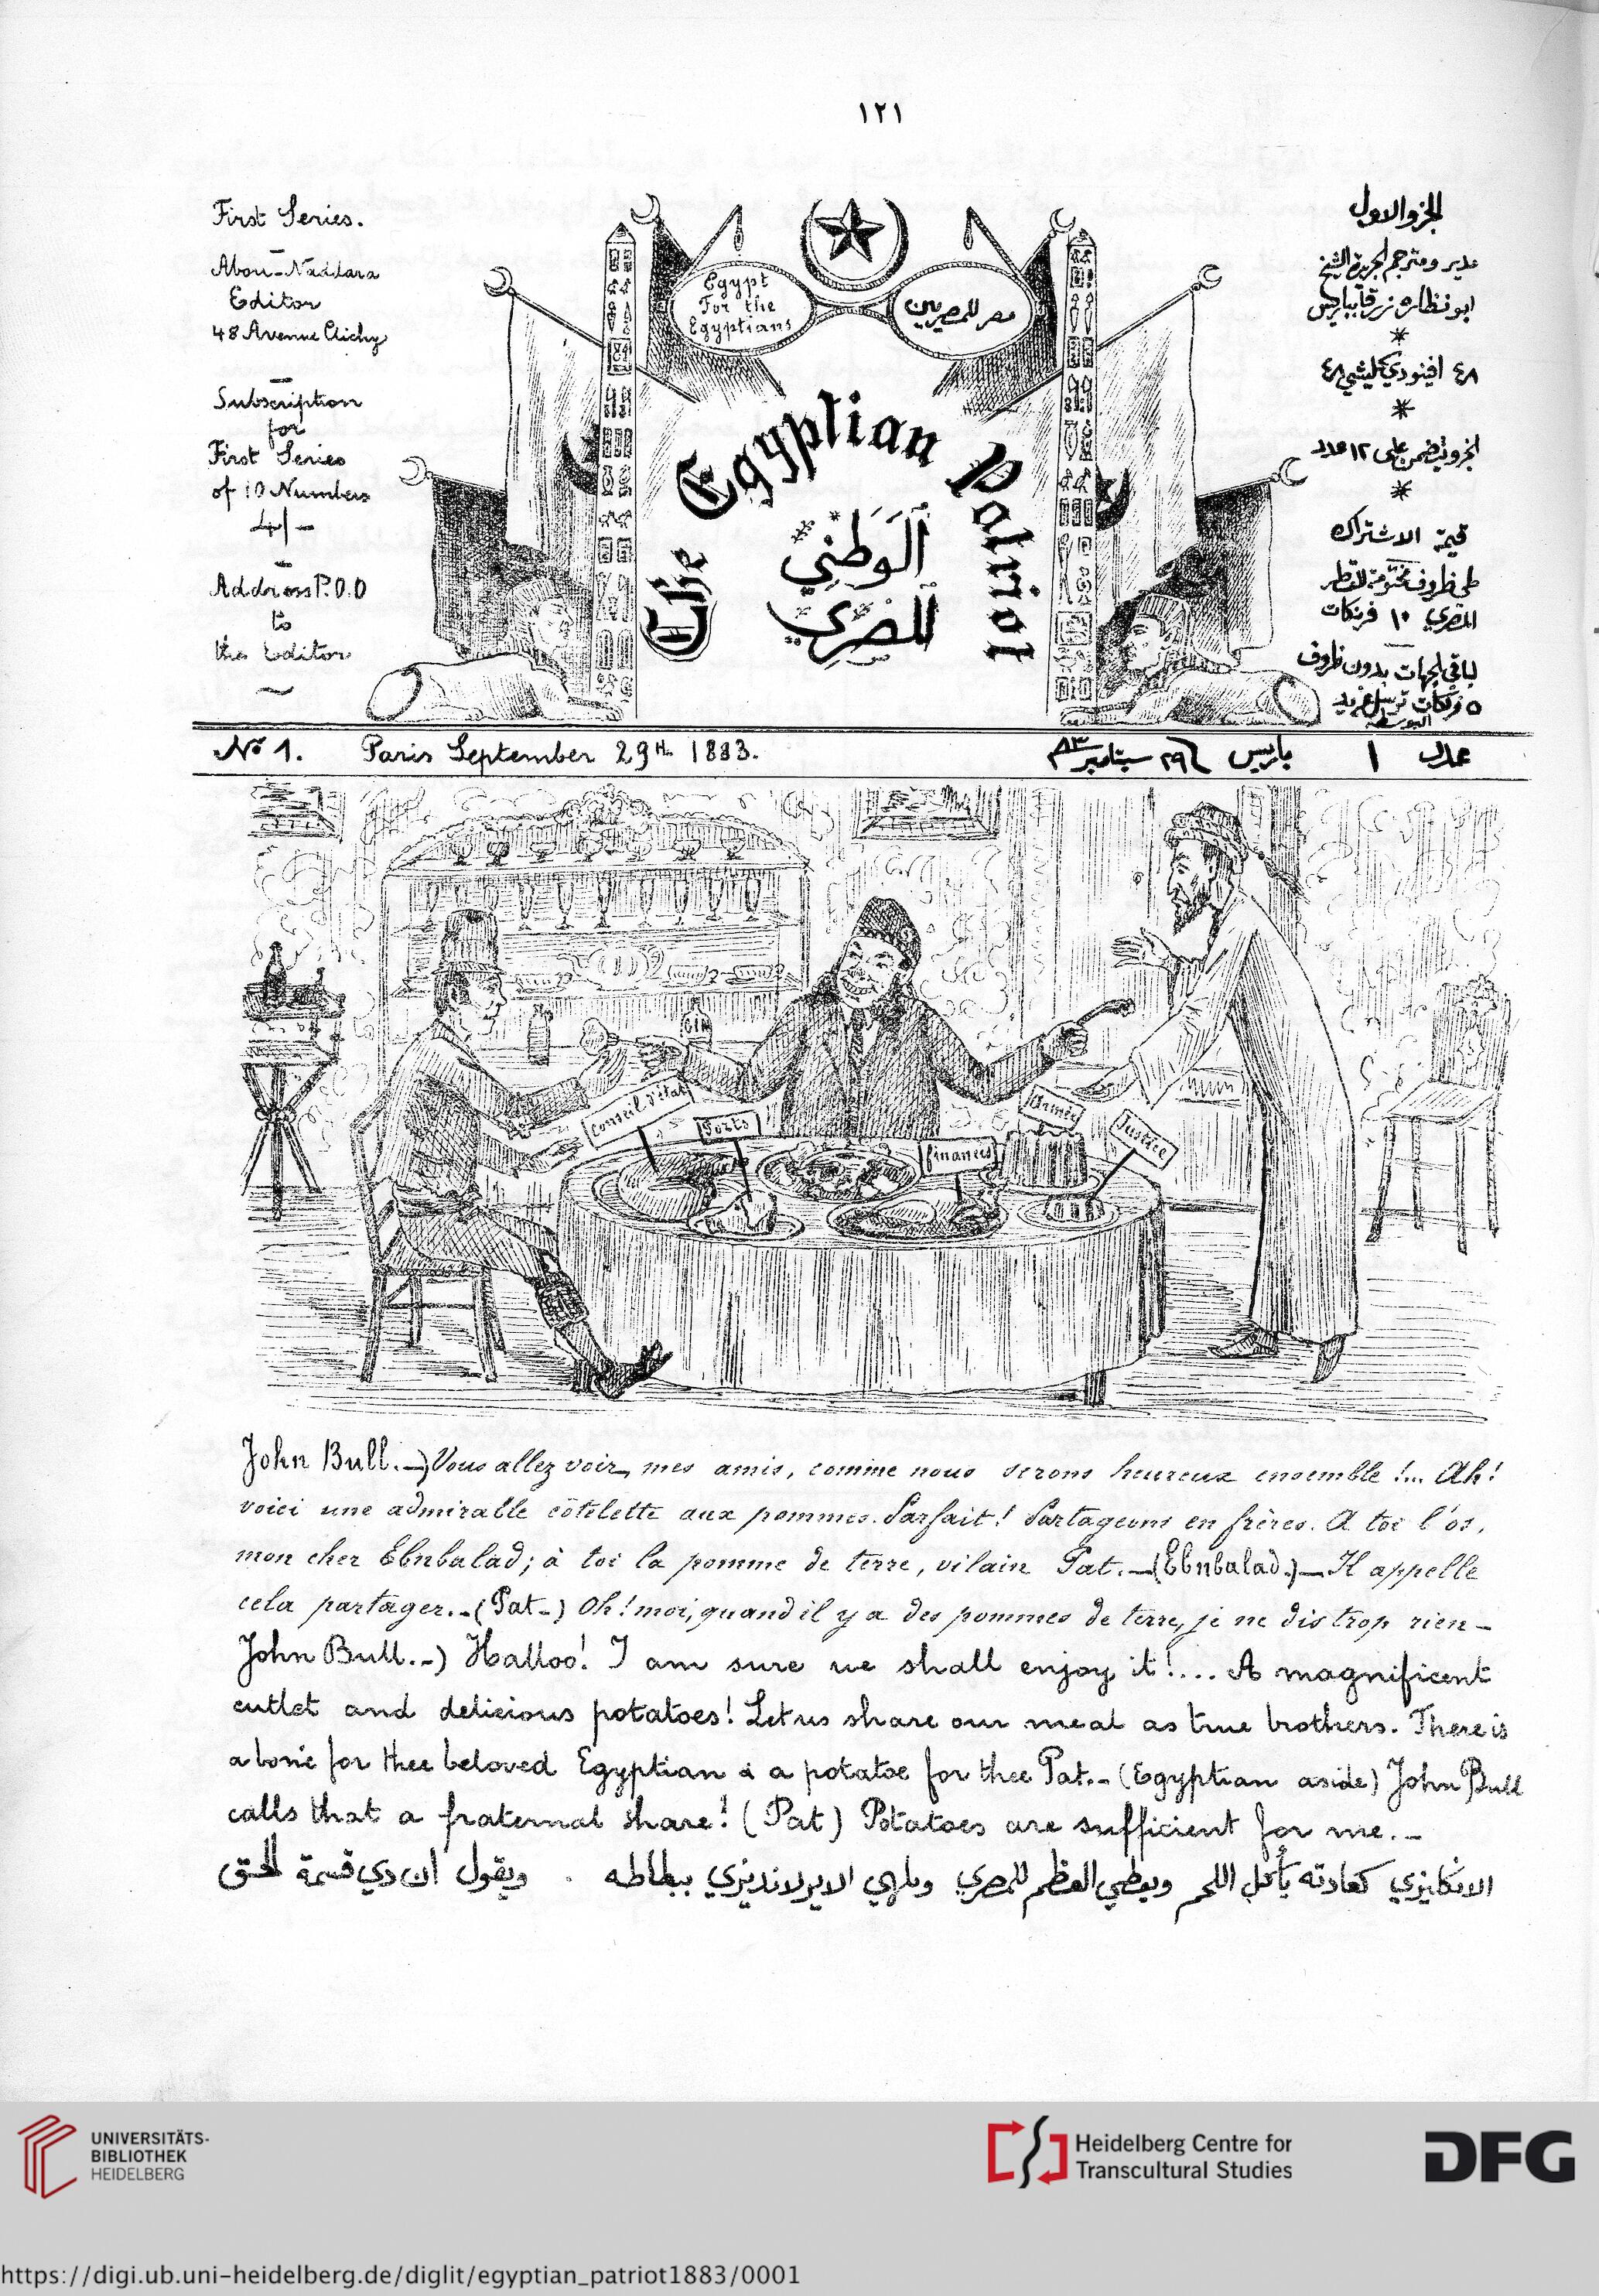 ١٢١
First Series.
Abou-Naddara
Editor
48 Avenue Clichy
Subscription
for
First Series
of 10 Numbers
4/-
Address P.O.O
to
the Editor
Egypt
For the
Egyptians
مصر للمصريين
The Egyptian Patriot
الوَطَنِي
المصري
الجزو الاول
مدير ومترجم الجريدة الشيخ
ابو نظاره زرقا بباريس
٤٨ افينو دي كليشي ٤٨
الجزو يتضمن على ١٢ عدد
قيمة الاشتراك
طى ظروف مختومة للقطر
المصري ١٠ فرنكات
لباقي الجهات بدون ظروف
٥ فرنكات ترسل
البوسطه
No 1. Paris September 29th 1883.
عدد ١ باريس ٢٩ سبتامبر ٨٣
GIN
Conseil d'état
Ports
finances
Armée
Justice
John Bull.-) Vous allez voir, mes amis, comme nous serons heureux ensemble !... Ah!
voici une admirable côtelette aux pommes. Parfait! Partageons en frères. A toi l'os,
mon cher Ebnbalad; à toi la pomme de terre, vilain Pat.-(Ebnbalad.)- Il appelle
cela partager.-(Pat-) Oh! moi, quand il y a des pommes de terre, je ne dis trop rien-
John Bull.-) Halloo! I am sure we shall enjoy it!... A magnificent
cutlet and delicious potatoes! Let us share our meal as true brothers. There is
a bone for thee beloved Egyptian & a potatoe for thee Pat.- (Egyptian aside) John Bull
calls that a fraternal share! (Pat) Potatoes are sufficient for me.-
الانكليزي كعادته يأكل اللحم ويعطي العظم للمصري ويلهي الايرلانديزي ببطاطه . ويقول ان دي قسمة الحق
UNIVERSITÄTS-
BIBLIOTHEK
HEIDELBERG
Heidelberg Centre for
Transcultural Studies
DFG
https://digi.ub.uni-heidelberg.de/diglit/egyptian_patriot1883/0001